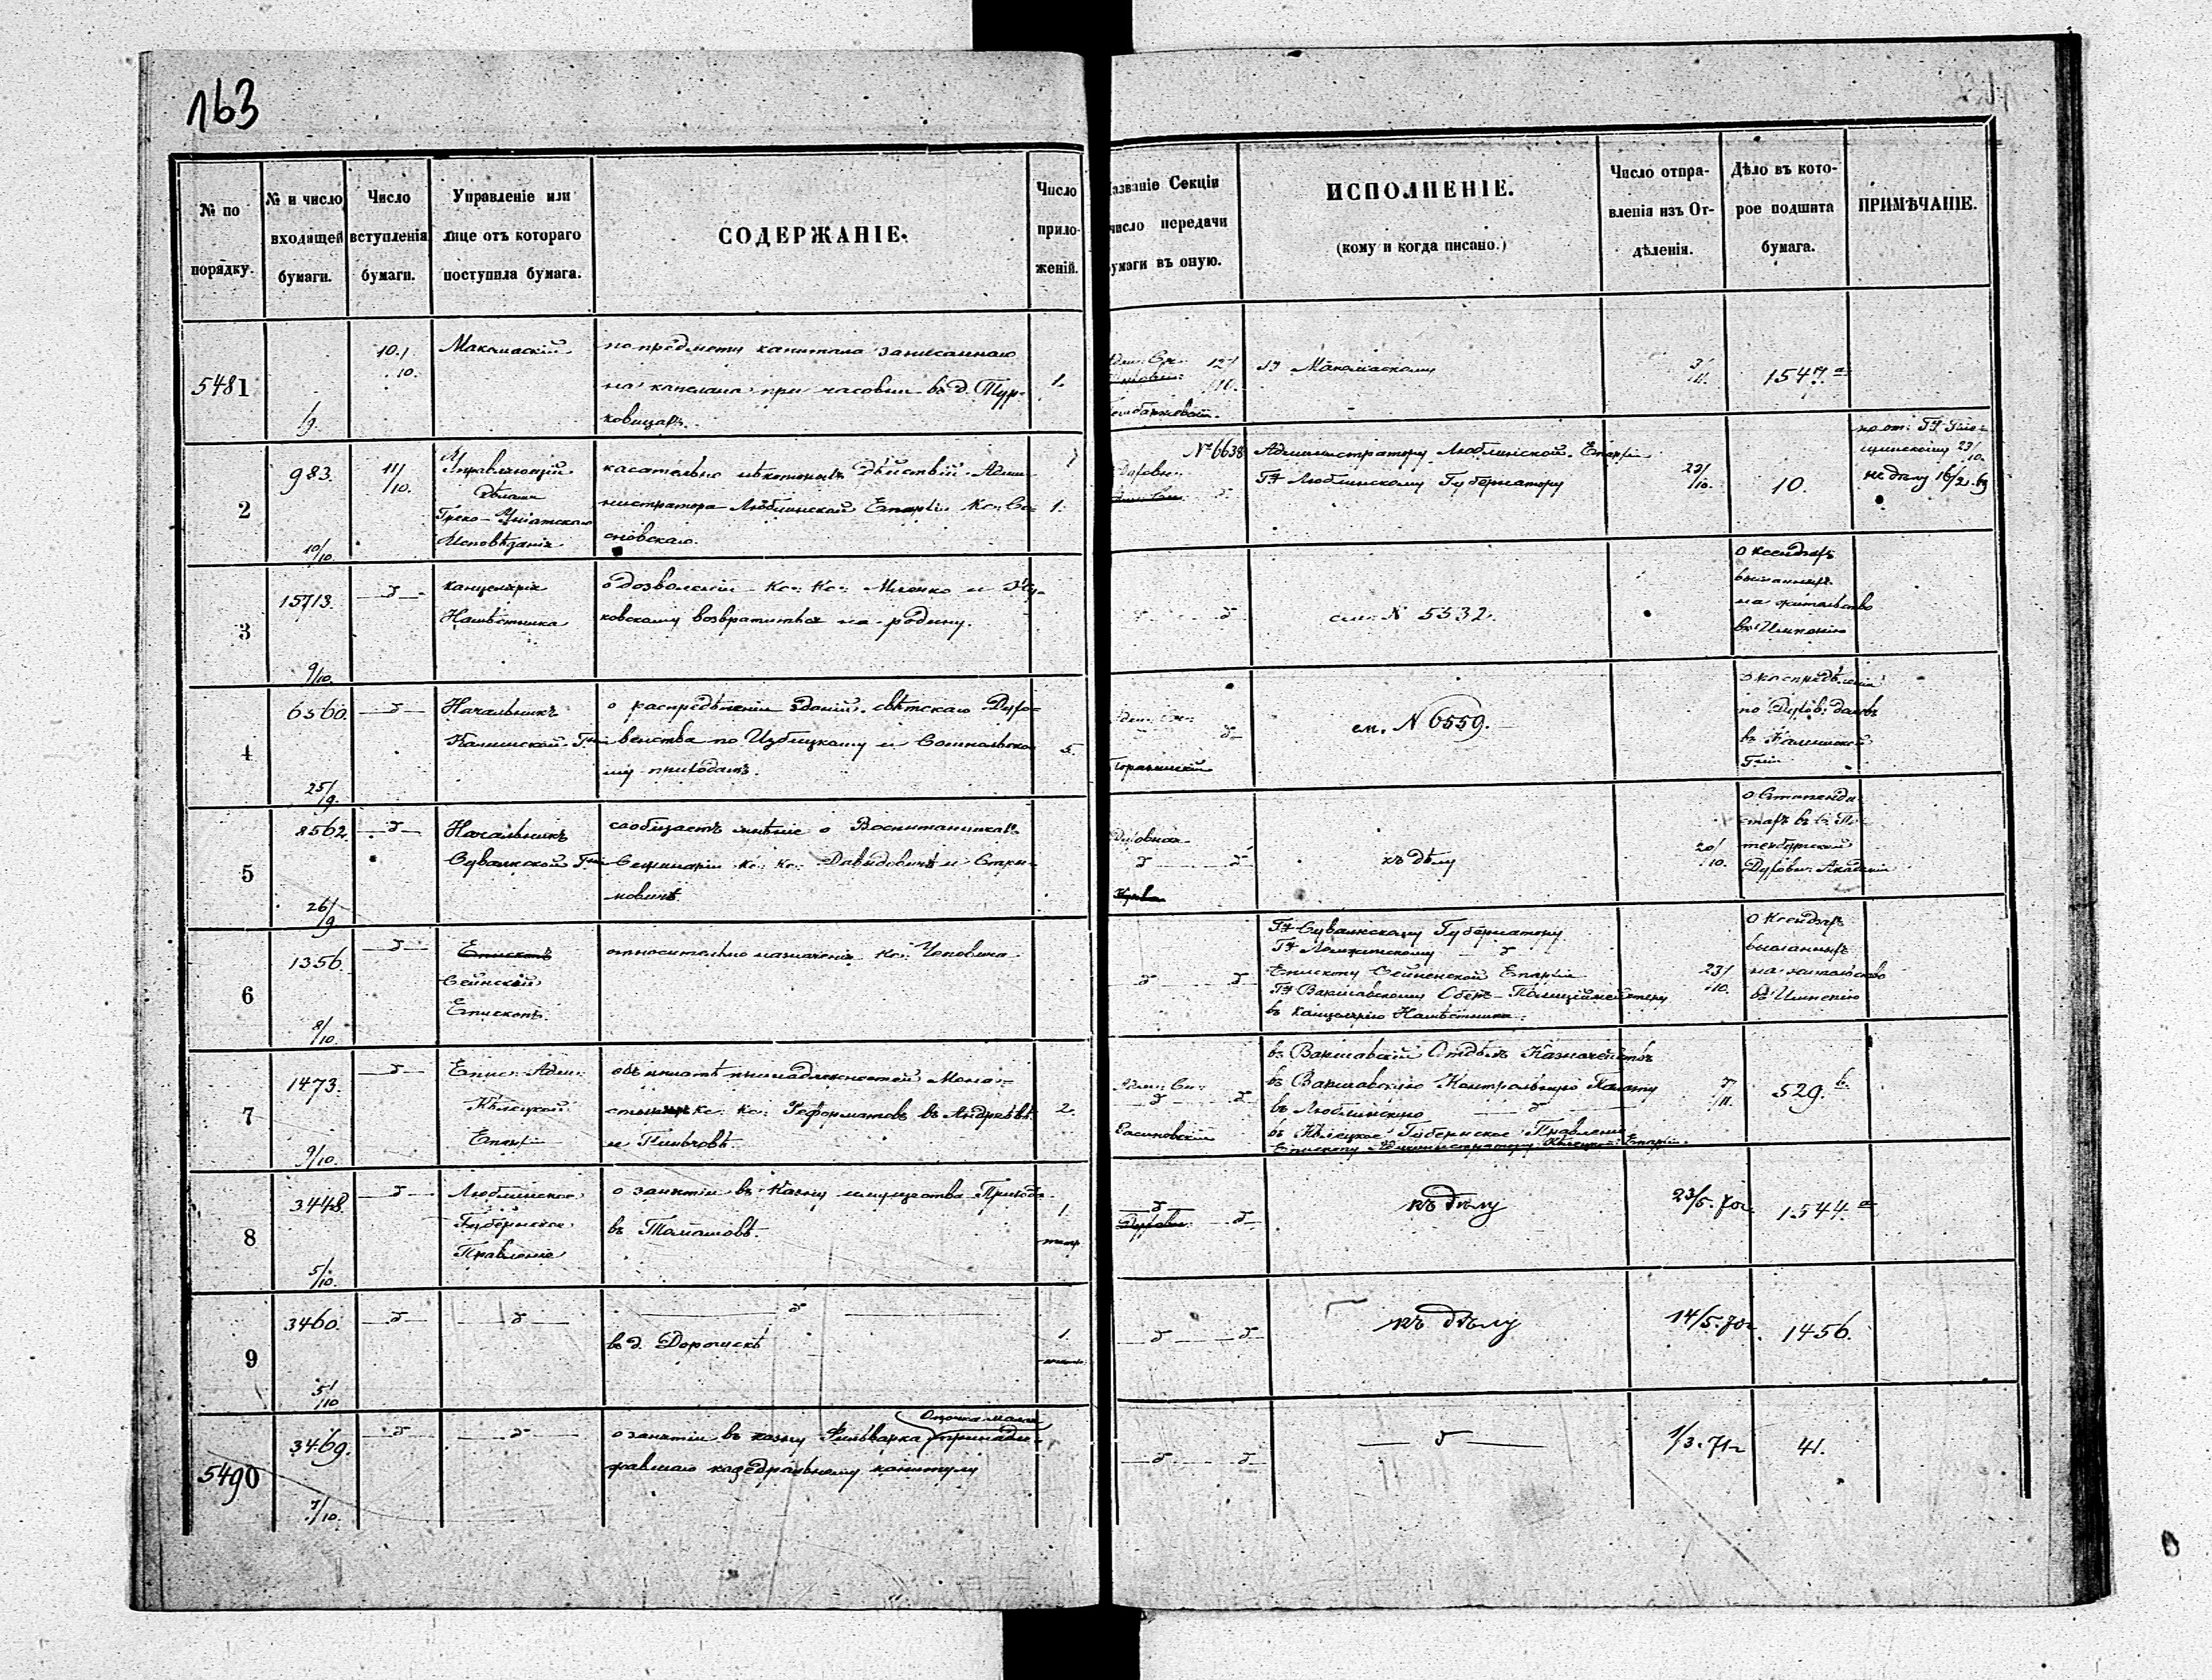 163
№ по порядку.
№ и число входящей бумаги.
Число вступленія бумаги.
Управленіе или лице отъ котораго поступила бумага.
СОДЕРЖАНІЕ.
Число прило-женій.
азваніе Секціи число передачи бумаги въ оную.
ИСПОЛНЕНІЕ.
(кому и когда писано.)
Число отпра-вленія изъ От-дѣленія.
Дѣло въ кото-рое подшита бумага.
ПРИМѢЧАНІЕ.
5481
/9.
10./10.
по предмету капитала записаннаго
на капелана при часовни въ д. Тур-
ковицахъ.
1.
12/10.
3/11.
1547 а
2
983.
10/10.
11/10.
Управляющій
дѣлами
Греко-Уніатскаго
Исповѣданія
касательно нѣкоторыхъ дѣйствій Адми-
нистратора Люблинской Епархіи Кс: Со-
сновскаго.
1.
№ 6638
Администратору Люблинской Епархіи
ГФ Люблинскому Губернатору
23/10.
10.
23/10.
къ дѣлу 16/2 69
3
15713.
9/10.
Канцелярія
Намѣстника
о дозволеніи Кс: Кс:
ковскому возвратиться на родину.
см. N 5532.
о ксендзахъ
высланныхъ
на жительство
въ Имперію
4
6560.
25/9.
Начальникъ
Калишской Гніи
о распредѣленіи зданій свѣтскаго Духо-
венства по Избицкому и Сомпольско-
му приходамъ.
5.
см. N 6559.
о распредѣленіи
по Духов: домовъ
въ Калишской
Гніи
5
8562.
26/9
Начальникъ
Сувалкской Гніи
сообщаетъ мнѣніе о Воспитанникахъ
Семинаріи Кс: Кс: Давидовичѣ и Стри-
мовичѣ.
Духовная
къ дѣлу
20/10.
о Стипенди-
атахъ въ С. Пе-
тербургской
Духовн: Академіи
6
1356.
8/10.
Епископъ
Сейнскій
Епископъ.
относительно назначенія Кс:
ГФ Сувалкскому Губернатору
ГФ Ломжинскому
Епископу Сейненской Епархіи
ГФ Варшавскому Оберъ-Полиціймейстеру
въ Канцелярію Намѣстника.
23/10.
о Ксендзахъ
высланныхъ
на жительство
въ Имперію
7
1473.
9/10.
Епис: Адми:
Кѣлецкой
Епархіи
объ уплатѣ принадлежностей Мона-
Кс: Кс: Реформатовъ въ Андреевѣ
и Пинчовѣ.
2.
въ Варшавскій Отдѣлъ Казначействъ
въ Варшавскую Контрольную Палату
въ Люблинскую
въ Кѣлецкое Губернское Правленіе
Епископу Администратору Кѣлецкой Епархіи.
7/11.
529. b.
8
3448.
5/10.
Люблинское
Губернское
Правленіе
о занятіи въ Казну имущества Прихода
въ Томашовѣ.
1.
къ дѣлу
23/5. 70г.
1544. а
9
3460.
5/10
въ д. Дорогускѣ
1.
къ дѣлу
14/5. 70г.
1456.
5490
3469.
7/10.
о занятіи въ казну Фольварка принадле-
жавшаго каѳедральному капитулу
1/3. 71г
41.